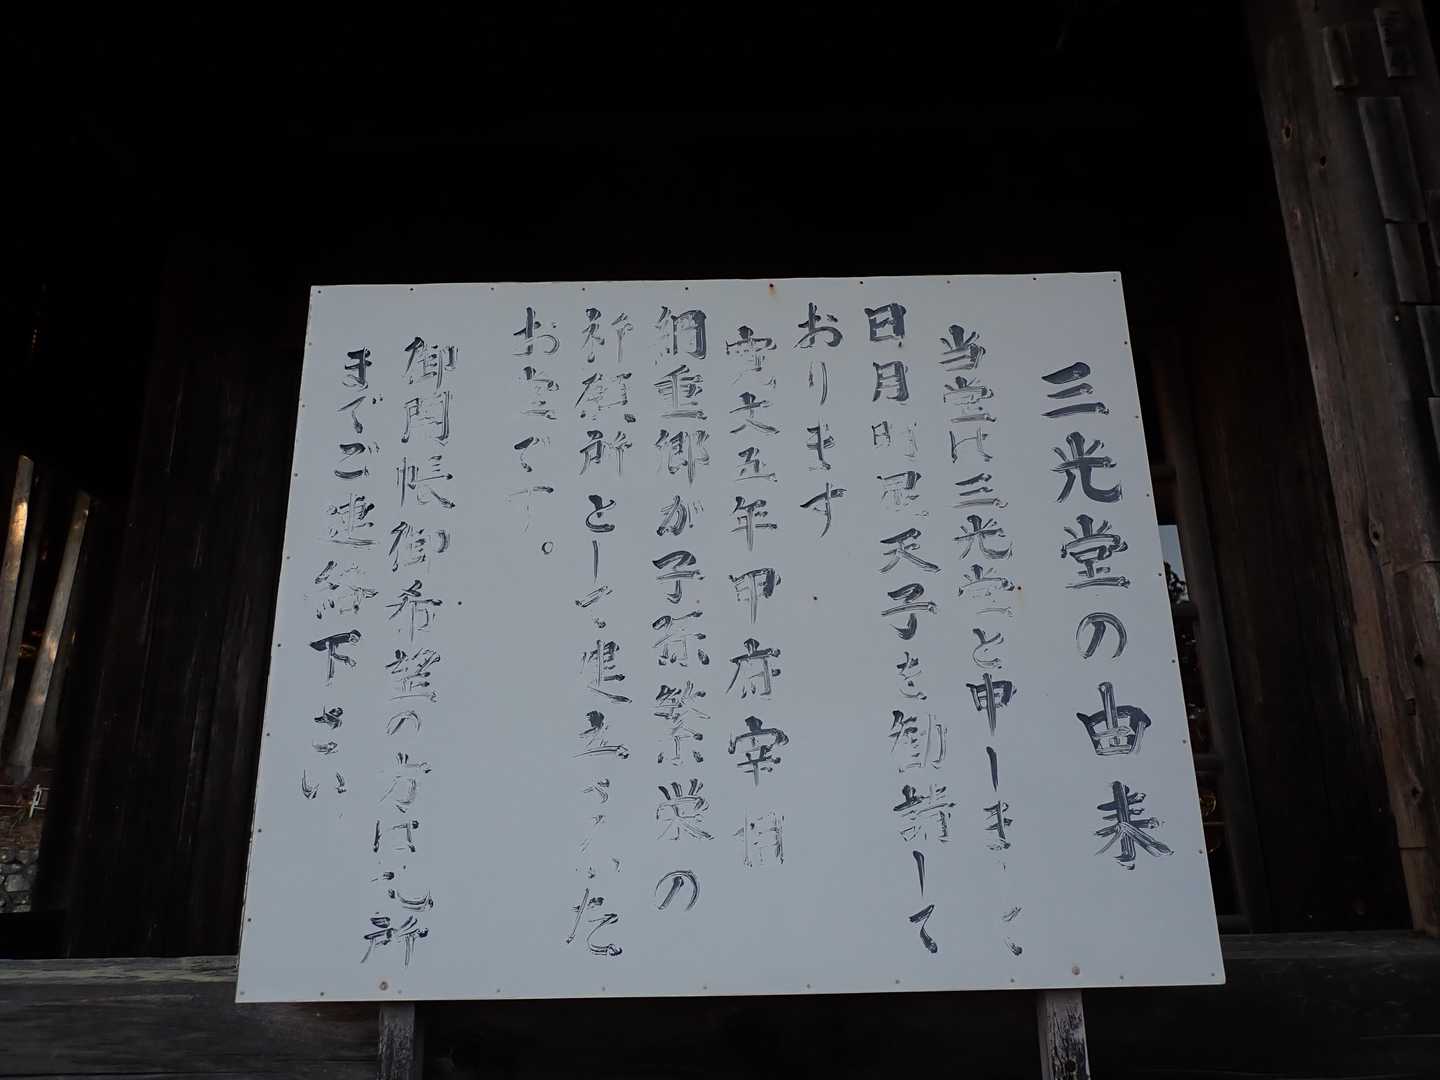 三光堂の由来
当堂は三光堂と申しまして
日月明星天子を勧請して
おります
寛文五年甲府宰相
綱重郷が子孫繁栄の
祈願所として建立された
お堂です。
御開帳御希望の方は札所
までご連絡下さい